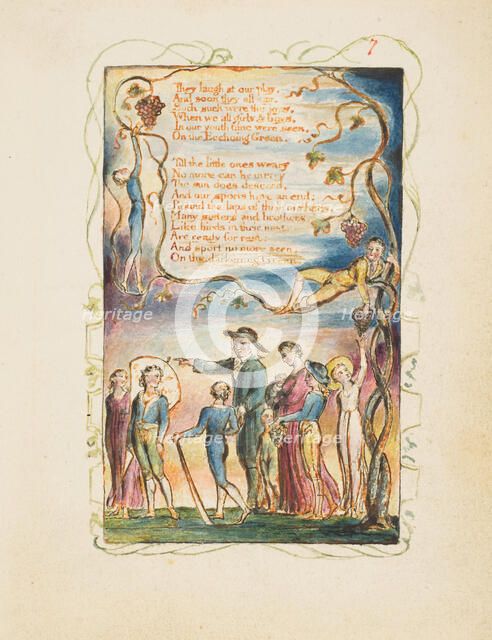 7
They laugh at our play,
And soon they all say,
Such such were the joys,
When we all girls & boys,
In our youth time were seen,
On the Ecchoing Green.
Till the little ones weary
No more can be merry
The sun does descend,
And our sports have an end:
Round the laps of their mothers,
Many sisters and brothers,
Like birds in their nest,
Are ready for rest;
And sport no more seen,
On the darkening Green.
Heritage
Heritage
Heritage
Heritage